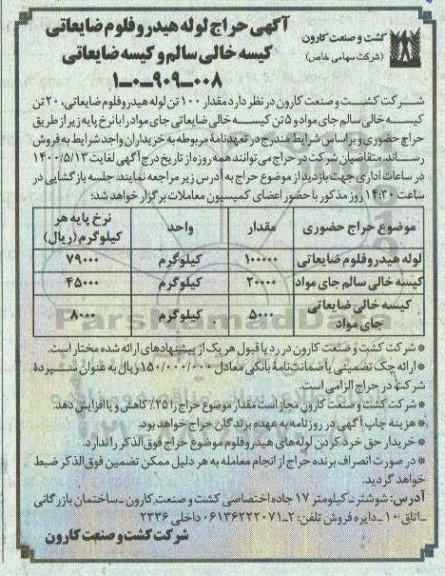 کشت و صنعت کارون
(شرکت سهامی خاص)
آگهی حراج لوله هیدروفلوم ضایعاتی
کیسه خالی سالم و کیسه ضایعاتی
۱-۰-۹۰۹-۰۰۸
شرکت کشت و صنعت کارون در نظر دارد مقدار ۱۰۰ تن لوله هیدروفلوم ضایعاتی، ۲۰ تن
کیسه خالی سالم جای مواد و ۵ تن کیسه خالی ضایعاتی جای مواد را با نرخ پایه زیر از طریق
حراج حضوری و براساس شرایط مندرج در تعهدنامه مربوطه به خریداران واجد شرایط به فروش
رساند. متقاضیان شرکت در حراج می توانند همه روزه از تاریخ درج آگهی لغایت ۱۴۰۰/۵/۱۳
در ساعات اداری جهت بازدید از موضوع حراج به آدرس زیر مراجعه نمایند. جلسه بازگشایی در
ساعت ۱۴:۳۰ روز مذکور با حضور اعضای کمیسیون معاملات برگزار خواهد شد:
موضوع حراج حضوری مقدار واحد نرخ پایه هر کیلوگرم (ریال)
لوله هیدروفلوم ضایعاتی ۱۰۰۰۰۰ کیلوگرم ۷۹۰۰۰
کیسه خالی سالم جای مواد ۲۰۰۰۰ کیلوگرم ۴۵۰۰۰
کیسه خالی ضایعاتی جای مواد ۵۰۰۰ کیلوگرم ۸۰۰۰
ParsNamadData
* شرکت کشت و صنعت کارون در رد یا قبول هر یک از پیشنهادهای ارائه شده مختار است.
* ارائه چک تضمینی یا ضمانت نامه بانکی معادل ۱۵۰/۰۰۰/۰۰۰ ریال به عنوان سپرده
شرکت در حراج الزامی است.
* شرکت کشت و صنعت کارون مجاز است مقدار موضوع حراج را ۲۵٪ کاهش و یا افزایش دهد.
* هزینه چاپ آگهی در روزنامه به عهده برندگان حراج خواهد بود.
* خریدار حق خرد کردن لوله‌های هیدروفلوم موضوع حراج فوق الذکر را ندارد.
* در صورت انصراف برنده حراج از انجام معامله به هر دلیل ممکن تضمین فوق الذکر ضبط
خواهد گردید.
آدرس: شوشتر ـ کیلومتر ۱۷ جاده اختصاصی کشت و صنعت کارون ـ ساختمان بازرگانی
ـ اتاق ۱۰ ـ دایره فروش تلفن: ۲ـ۰۶۱۳۶۲۲۲۰۷۱ داخلی ۲۳۳۶
شرکت کشت و صنعت کارون